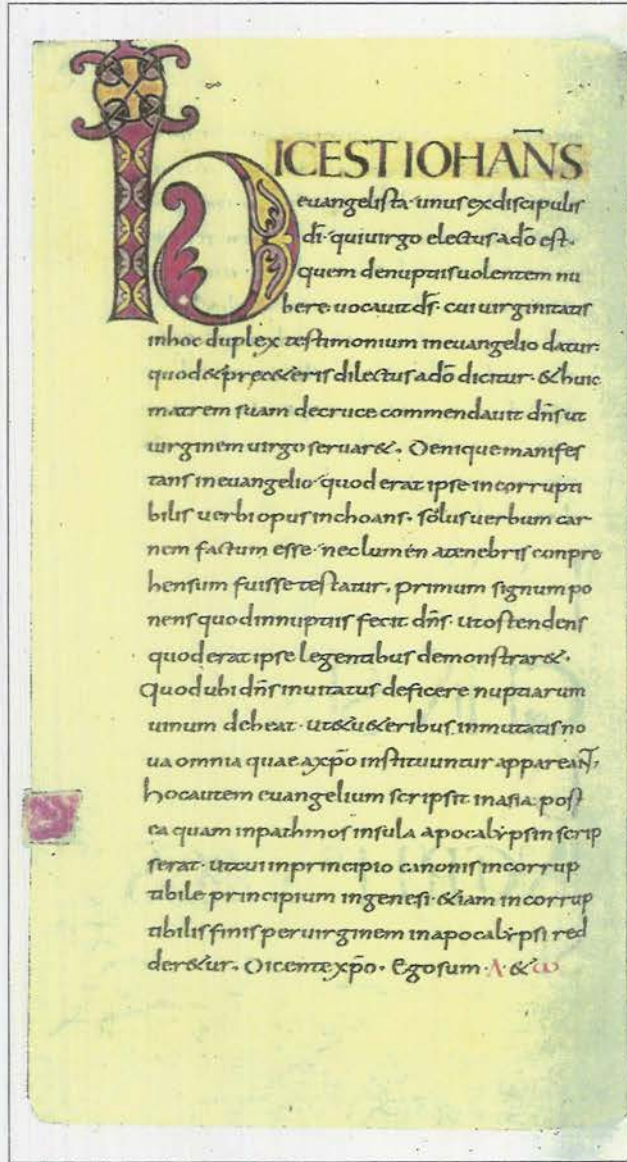 HIC EST IOHAN̄S
euangelista · unus ex discipulis
dī · qui uirgo electus a dō est ·
quem de nuptiis uolentem nu
bere uocauit dς̄ · cui uirginitatis
in hoc duplex testimonium in euangelio datur ·
quod & prae c&eris dilectus a dō dicitur · & huic
matrem suam de cruce commendauit dn̄s ut
uirginem uirgo seruar& · Denique manifes
tans in euangelio quod erat ipse incorrupti
bilis uerbi opus inchoans · solus uerbum car
nem factum esse · nec lumen a tenebris conpre
hensum fuisse testatur · primum signum po
nens quod in nuptiis fecit dn̄s · ut ostendens
quod erat ipse legentibus demonstrar& ·
Quod ubi dn̄s inuitatus deficere nuptiarum
uinum debeat · ut & u&eribus inmutatis no
ua omnia quae a xp̄o instituuntur appareant̄ ·
hoc autem euangelium scripsit in asia post
ea quam in pathmos insula apocalẏpsin scrip
serat · ut cui in principio canonis incorrup
tibile principium in genesi · &iam incorrup
tibilis finis per uirginem in apocalẏpsi red
der&ur · Dicente xp̄o · Ego sum · Λ · & ω